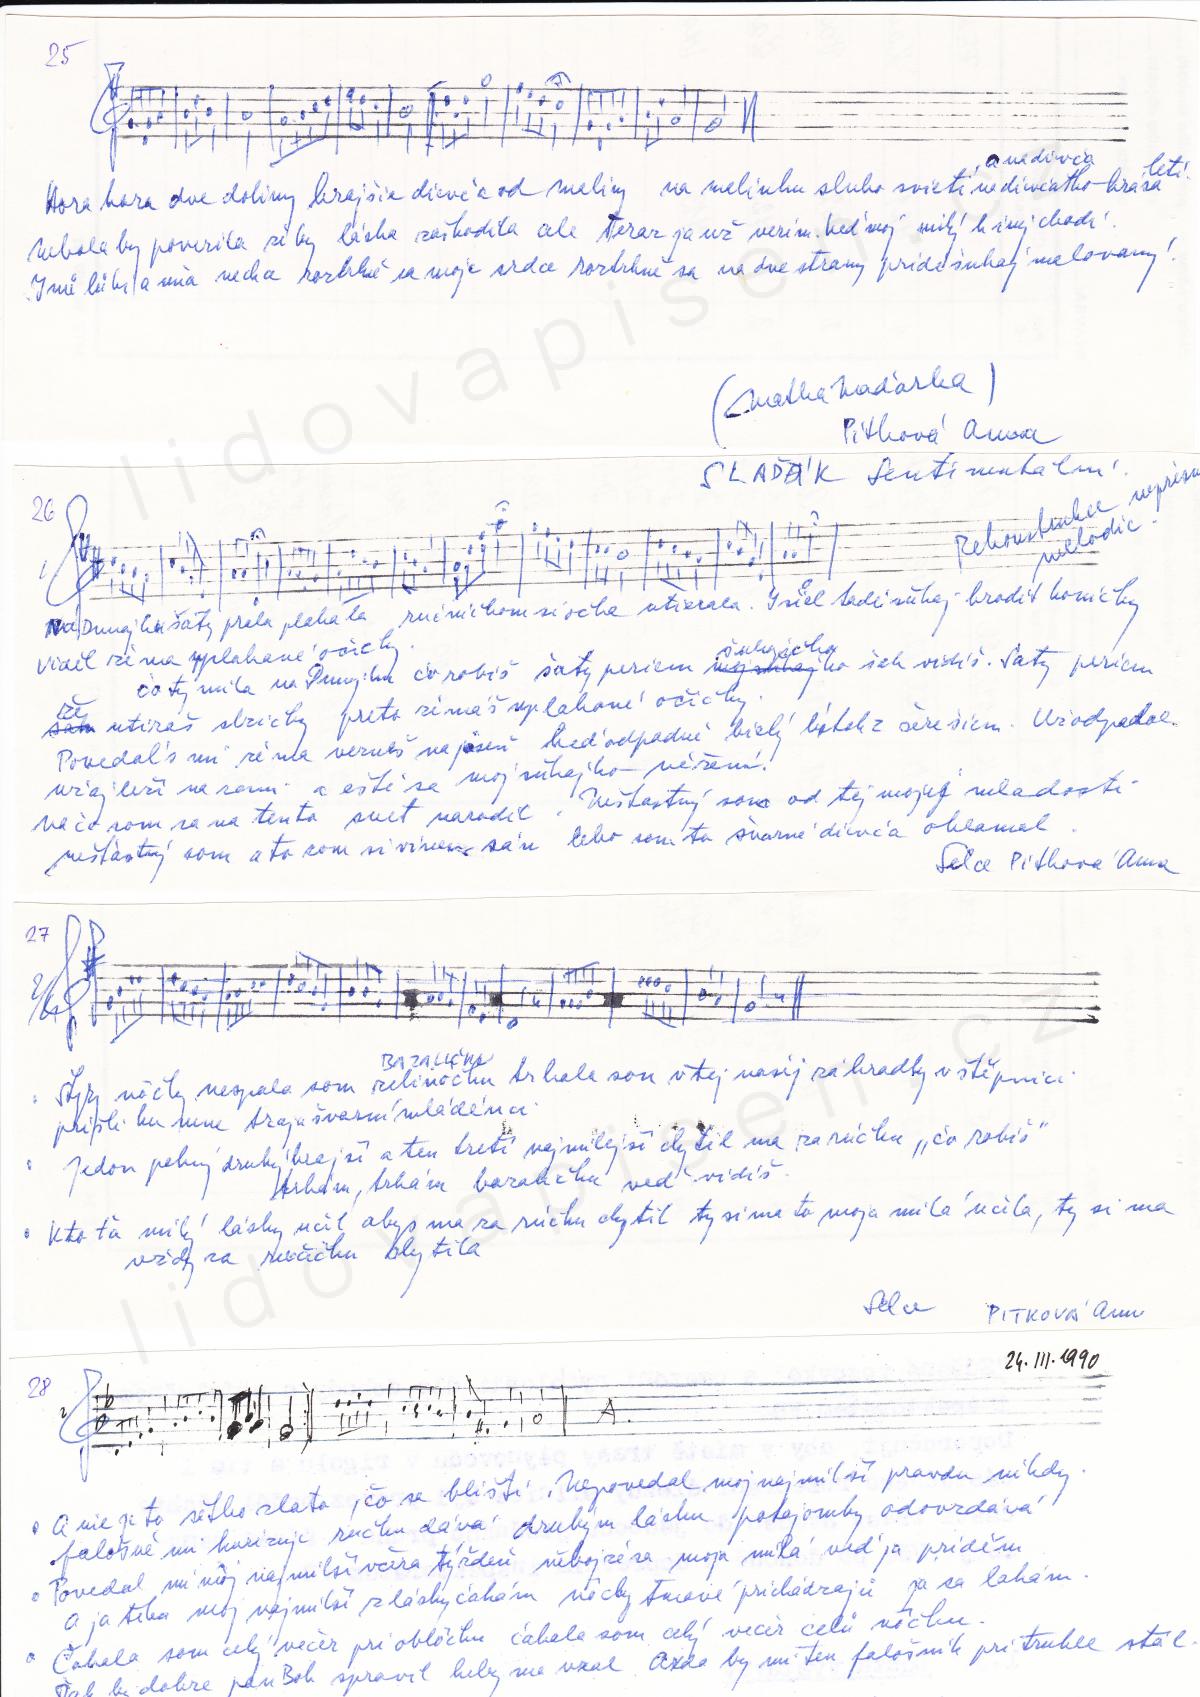 25
a na dievča
Hora hora dve doliny krajšie dievča od maliny na malinku slnko svieti na dievčatko krása letí.
Nebola by poverila že by láska zaškodila ale teraz ja už verím. keď môj milý k inej chodí.
Inú ľúbi a mňa nechá roztrhne sa moje srdce roztrhne sa na dve strany príde šuhaj malovaný!
(matka Maďarka)
Pitková Anna
26
SLAĎÁK Sentimentální.
Rekonstrukce nepřesná
melodie.
Na Dunajku šaty prala plakala ručníčkom si očká utierala. Išiel tadi šuhaj brodit koníčky
videl že ma uplakané očičky.
šuhajíčko
čo ty milá na Dunajku čo robíš šaty periem ko šak vidíš. Šaty periem
že
utieraš slzičky preto že máš uplakané očičky.
Povedal's mi že ma vezneš na jeseň keď odpadne biely lístek z čerešien. Už odpadol
už aj leží na zemi a ešte sa moj šuhajko nežení.
Načo som sa na tento svet narodil. Neštastný som od tej mojej mladosti
neštastný som a to som si vinen sám lebo som to švarné dievča oklamal.
Selce Pitková Anna
27
2/4
BAZALIČKU
Štyry nôčky nespala som zelinôčku trhala som v tej našej záhradky v štěpnici.
prišli ku mne traja švarní mládenci.
Jedon pekný druhý krajší a ten tretí najmilejší chytil ma za rúčku „čo robíš"
trhám, trhám bazaličku veď vidíš.
Kto ťa milý lásky učil abys ma za rúčku chytil ty si ma to moja milá učila, ty si ma
vždy za ručičku chytila
Selce PITKOVÁ Anna
24.III.1990
28
A.
A nie je to sětko zlato, čo sa blištί. Nepovedal moj najmilší pravdu nikdy.
falošné mi ručku dává druhým lásku potajomky odovzdává
Povedal mi môj najmilší včera týždeň neboj že sa moja milá veď ja prídem
A ja teba moj najmilší z lásky čakám nocky tmavé prichádzajú ja sa lakám.
Čakala som celý večer pri oblôčku čakala som celý večer celú nôčku.
Tak by dobre pan Boh spravil keby ma vzal. Azda by mi ten falošník pri truhle stál.
lidovapisen.cz
lidovapisen.cz